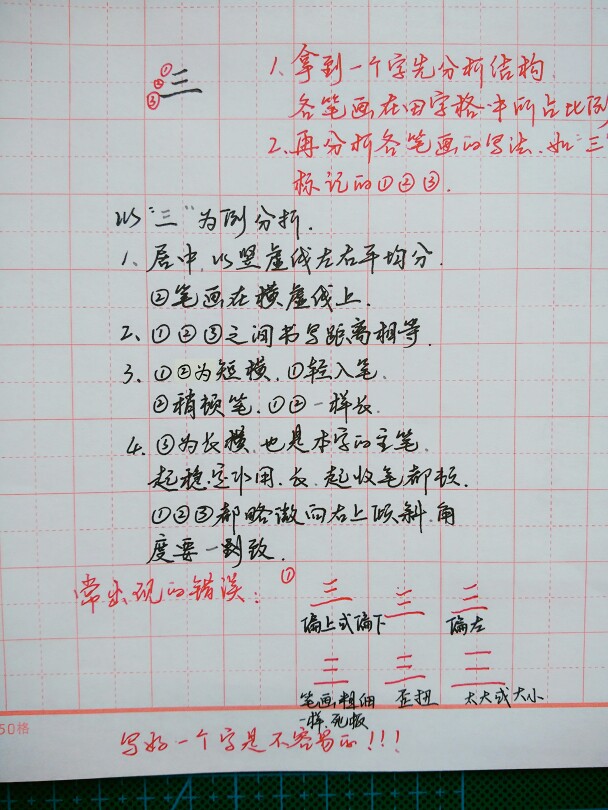 ①②③三
1、拿到一个字先分析结构
各笔画在田字格中所占比例
2、再分析各笔画的写法.如"三"
标记的①②③.
以"三"为例分析.
1、居中,以竖虚线左右平均分.
②笔画在横虚线上.
2、①②③之间书写距离相等.
3、①②为短横,①轻入笔.
②稍顿笔.①②一样长.
4、③为长横,也是本字的主笔.
起稳定作用.长.起收笔都顿.
①②③都略微向右上倾斜.角
度要一致.
常出现的错误:①三 三 三
偏上或偏下 偏左
三 三 三
笔画粗细 歪扭 太大或太小
一样.死板
50格
写好一个字是不容易的!!!